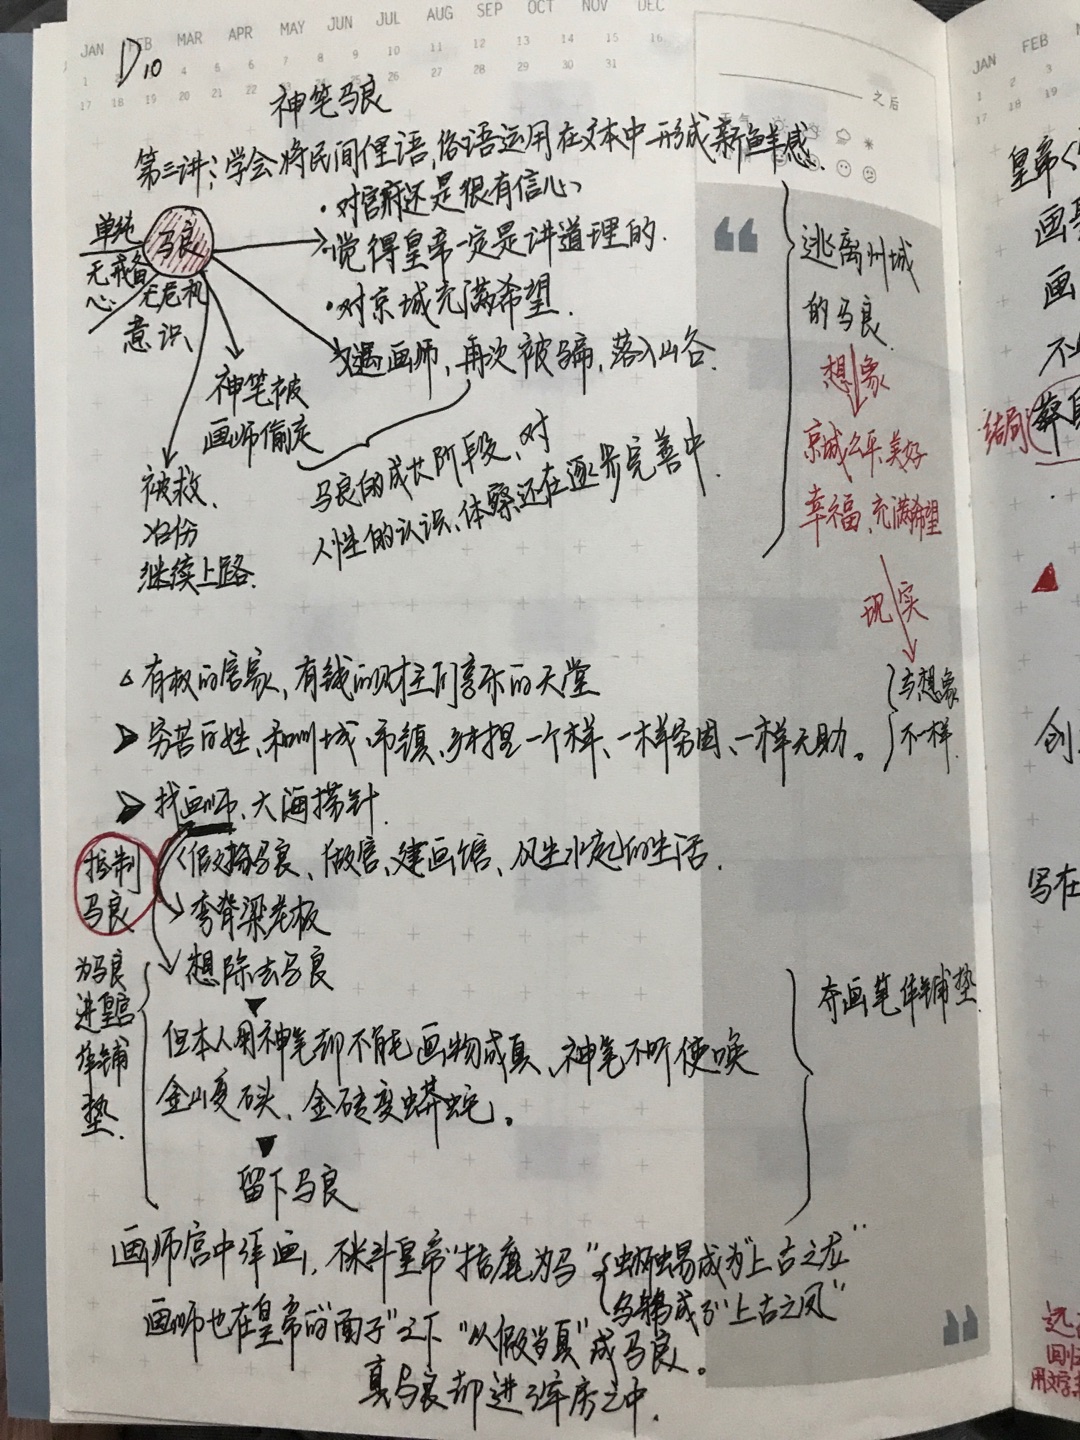 JAN FEB MAR APR MAY JUN JUL AUG SEP OCT NOV DEC
1 4 6 7 8 9 10 11 12 13 14 15 16
17 18 19 20 21 22 24 25 26 27 28 29 30 31
D10
之后
神笔马良
第三讲:学会将民间俚语,俗语运用在文本中形成新鲜感.
马良
单纯
无戒备
心
无危机
意识
·对官府还是很有信心
·觉得皇帝一定是讲道理的.
·对京城充满希望.
遇画师,再次被骗,落入山谷.
神笔被
画师偷走
被救、
继续上路.
马良的成长阶段,对
人性的认识、体察还在逐步完善中.
逃离州城
的马良.
想象
京城太平、美好
幸福、充满希望
现实
与想象
不一样.
有权的官家,有钱的财主们享乐的天堂
穷苦百姓、和州城、市镇、乡村是一个样、一样穷困、一样无助。
找画师、大海捞针.
控制
马良
假扮马良、做官、建画馆、风生水起的生活.
弯脊梁老板
想除去马良
但本人用神笔却不能画物成真、神笔不听使唤
金山变石头、金砖变蟒蛇。
留下马良
为马良
进皇宫
作铺
垫.
夺画笔作铺垫.
画师宫中作画,不料皇帝"指鹿为马"
蜥蜴成为"上古之龙"
乌鸦成了"上古之凤"
画师也在皇帝的"面子"之下"以假当真"成马良。
真马良却进了库房之中.
JAN FEB
1 2 3
17 18 19
皇帝
画
画
结局
创
写在